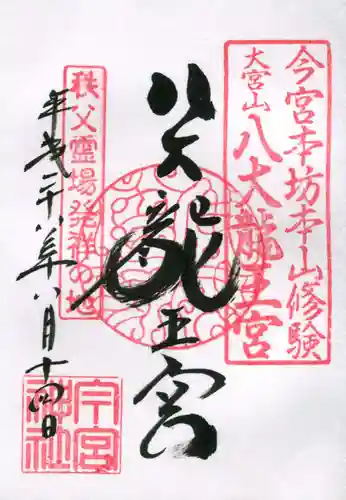 今宮本坊本山修験
大宮山
八大龍王宮
八大龍王宮
秩父霊場発祥の地
平成二十八年八月十四日
今宮神社